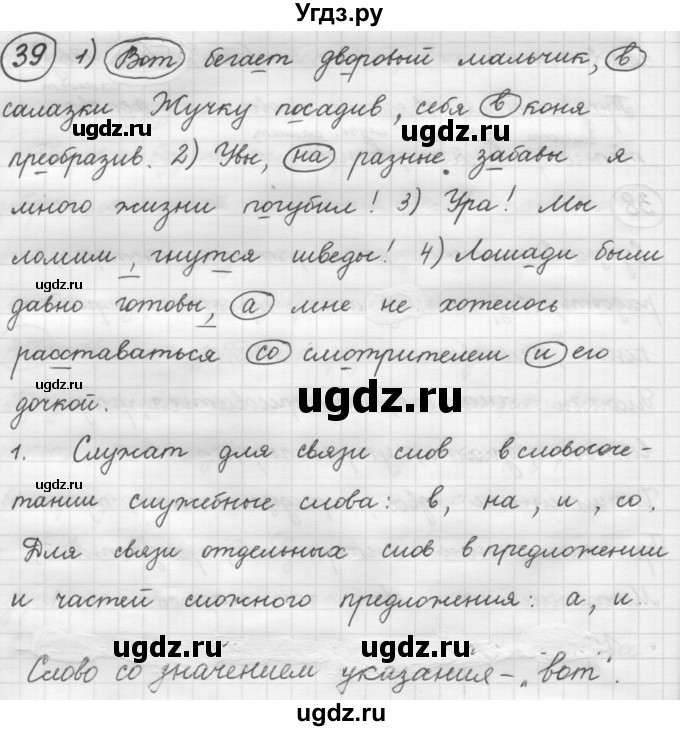 Угдз.ру
39 1) Вот бегает дворовый мальчик, в
салазки Жучку посадив, себя в коня
преобразив. 2) Увы, на разные забавы я
много жизни погубил! 3) Ура! Мы
ломим, гнутся шведы! 4) Лошади были
давно готовы, а мне не хотелось
расставаться со смотрителем и его
дочкой.
1. Служат для связи слов в словосоче-
тании служебные слова: в, на, и, со.
Для связи отдельных слов в предложении
и частей сложного предложения: а, и.
Слово со значением указания - "вот".
ugdz.ru
ugdz.ru
ugdz.ru
ugdz.ru
ugdz.ru
ugdz.ru
ugdz.ru
ugdz.ru
ugdz.ru
ugdz.ru
ugdz.ru